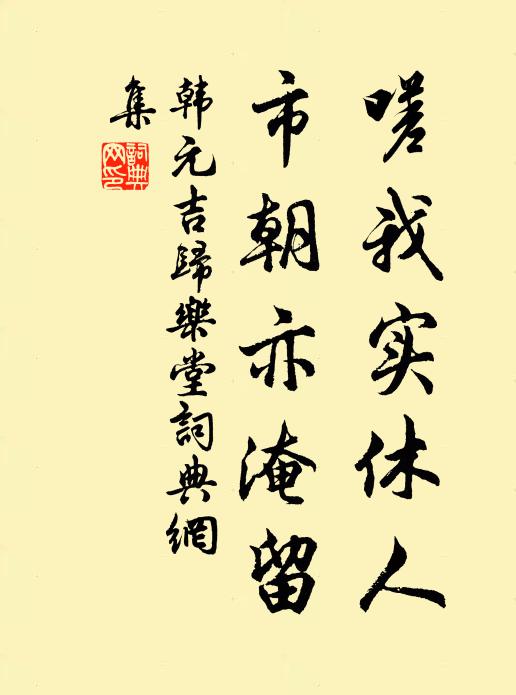 嗟我实休人
市朝亦淹留
韩元吉歸樂堂詞典網
集
詞典網印